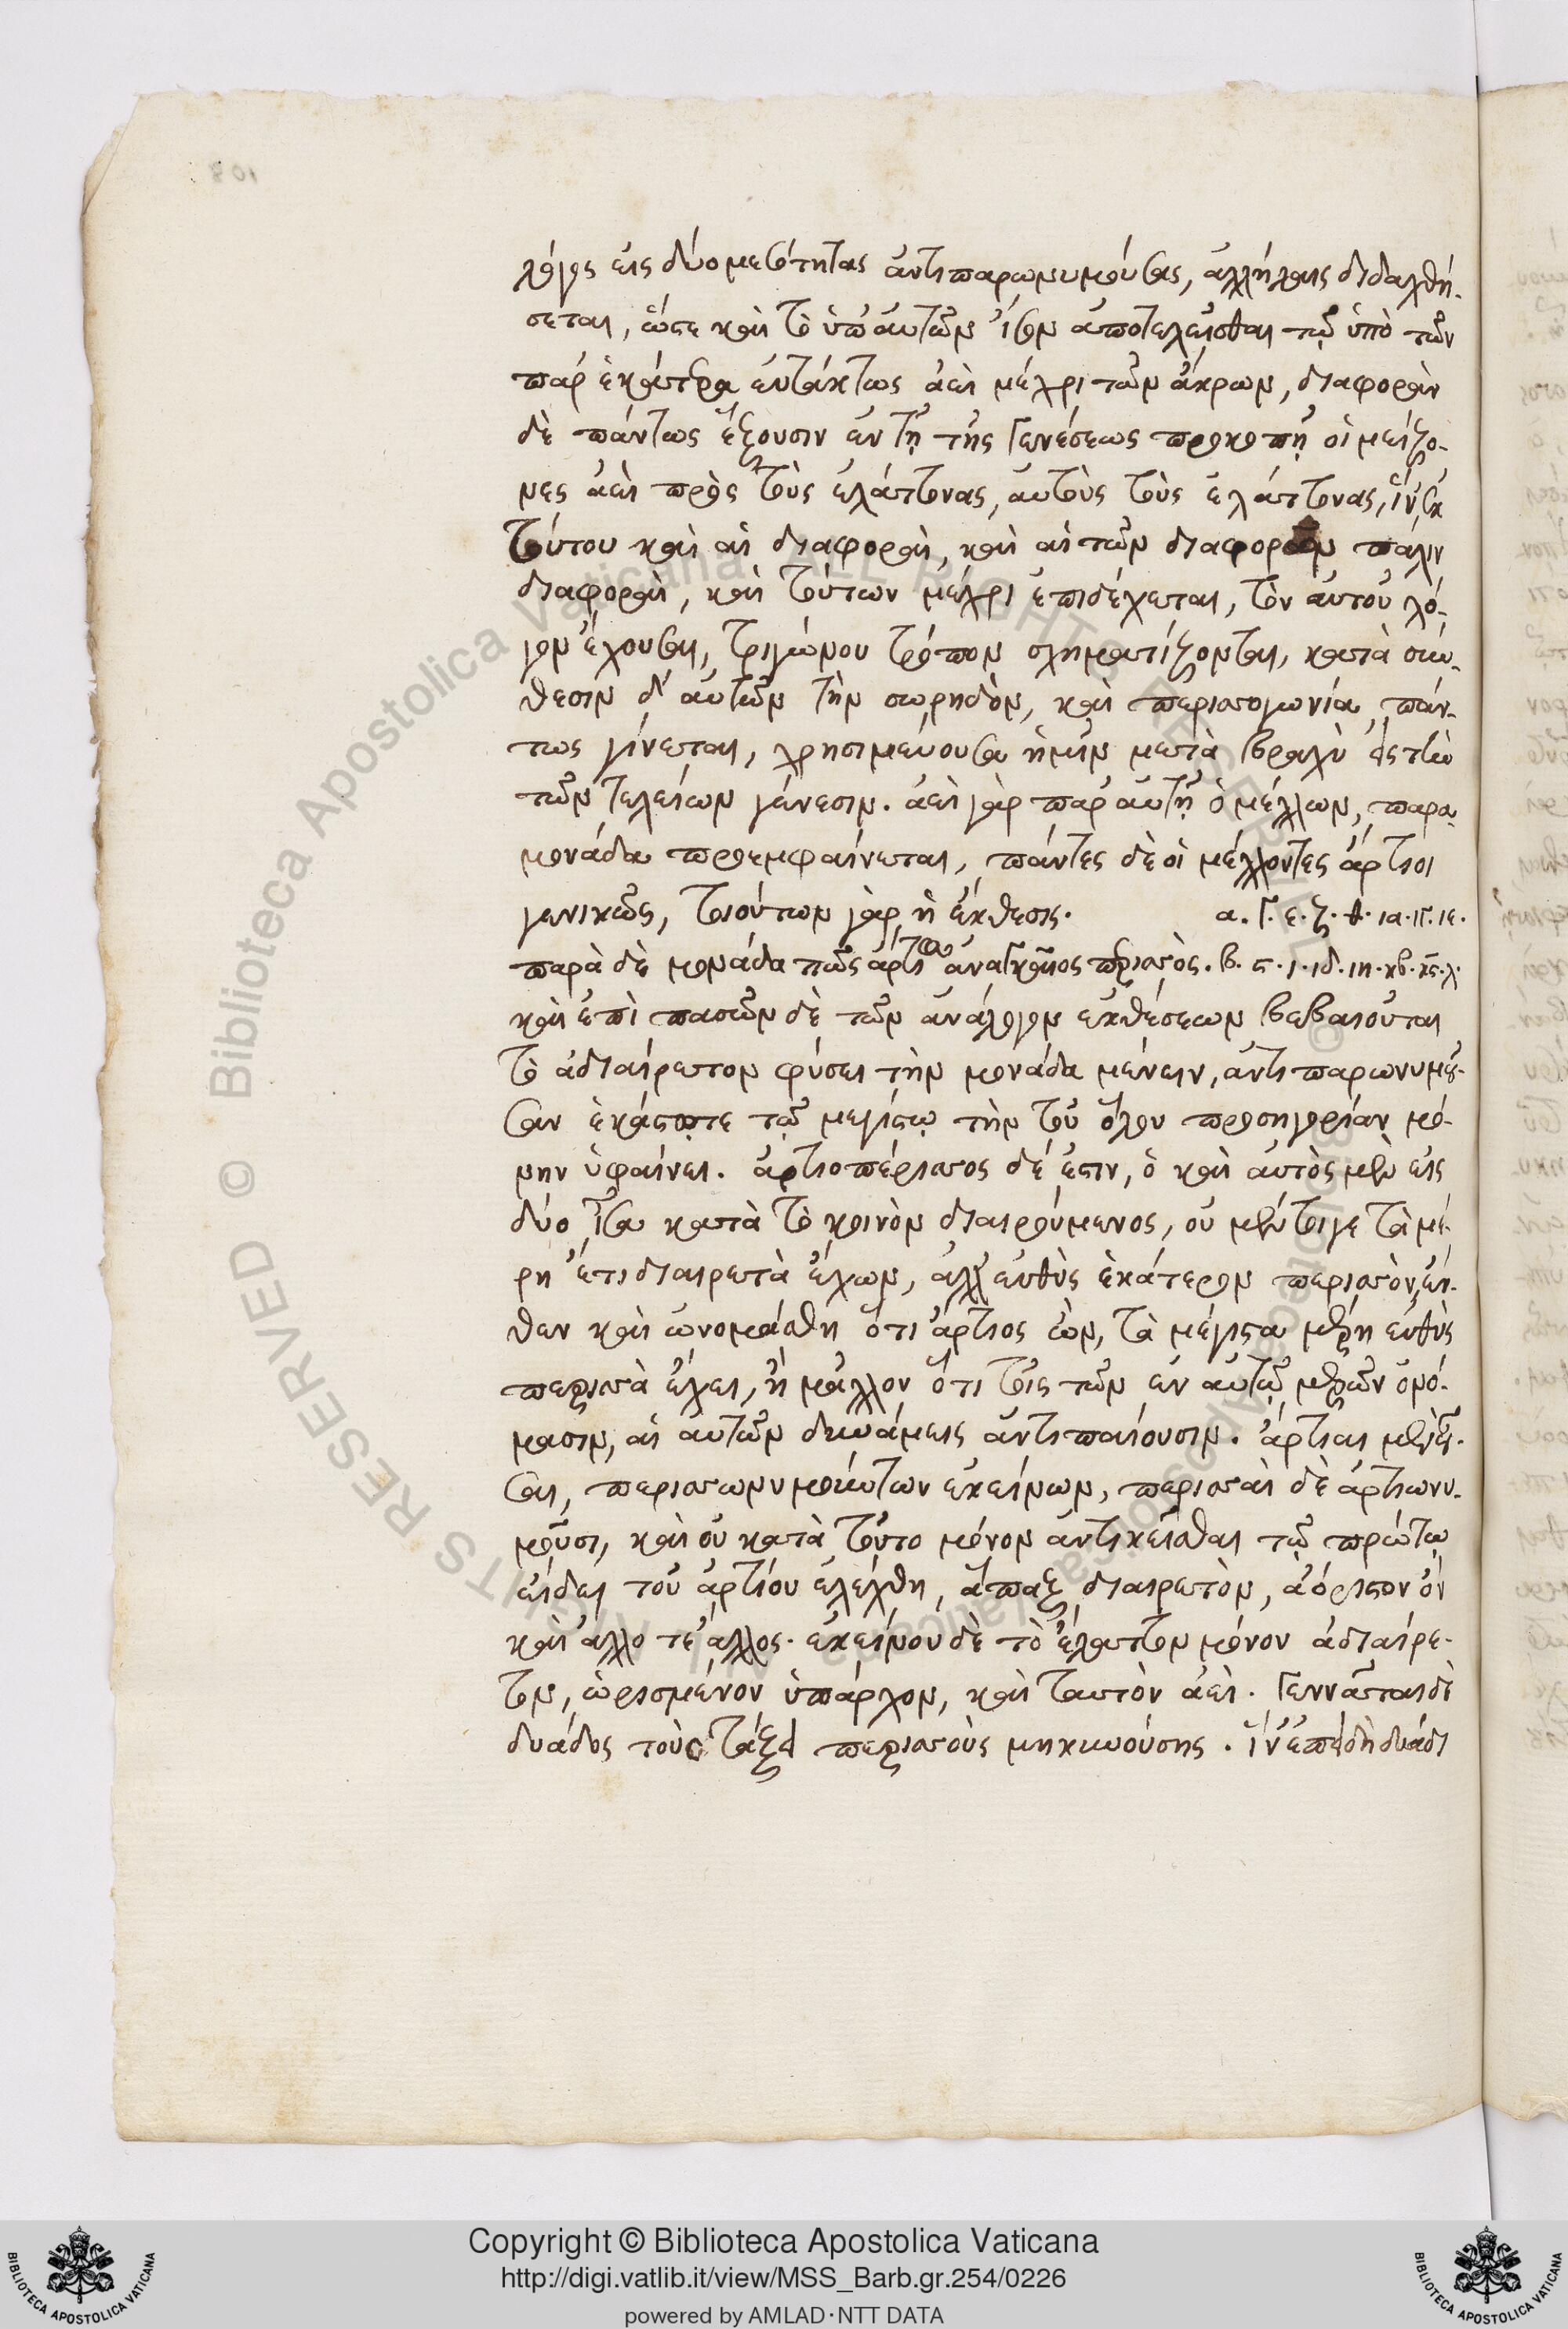 λόγος εἰς δύο μεσότητας ἀντιπαρωνυμούσας, ἀλλήλαις διδαχθή-
σεται, ὥστε καὶ τὸ ὑπ' αὐτῶν ἴσον ἀποτελεῖσθαι τῷ ὑπὸ τῶν
παρ' ἑκάτερα εὐτάκτως ἀεὶ μέχρι τῶν ἄκρων, διαφορὰν
δὲ πάντως ἕξουσιν ἐν τῇ τῆς γενέσεως προκοπῇ οἱ μείζο-
νες ἀεὶ πρὸς τοὺς ἐλάττονας, αὐτοὺς τοὺς ἐλάττονας, ἵν' ἐκ
τούτου καὶ αἱ διαφοραὶ, καὶ αἱ τῶν διαφορῶν πάλιν
διαφοραὶ, καὶ τούτων μέχρι ἐπιδέχεται, τὸν αὐτοῦ λό-
γον ἔχουσαι, τριγώνου τρόπον σχηματίζονται, κατὰ σύν-
θεσιν δ' αὐτῶν τὴν σωρηδὸν, καὶ περισσογωνία πάν-
τως γίνεται, χρησιμεύουσα ἡμῖν μετὰ βραχὺ ἐς τὴν
τῶν τελείων γένεσιν. ἀεὶ γὰρ παρ' αὐτῇ ὁ μέλλων, παρα
μονάδα προεμφαίνεται, πάντες δὲ οἱ μέλλοντες ἄρτιοι
γενικῶς, τοιούτων γὰρ ἡ ἔκθεσις. α. Γ. ε. ζ. θ. ια. ιΓ. ιε.
παρὰ δὲ μονάδα πῶς ἀρτίῳ ἀναγκαῖος περισσός. β. ς. ι. ιδ. ιη. κβ. κς. λ.
καὶ ἐπὶ πασῶν δὲ τῶν ἀνάλογον ἐκθέσεων βεβαιοῦται
τὸ ἀδιαίρετον φύσει τὴν μονάδα μένειν, ἀντιπαρωνυμοῦ-
σαν ἑκάστοτε τῷ μεγίστῳ τὴν τοῦ ὅλου προσηγορίαν μό-
νην ὑφαίνει. ἀρτιοπέρισσος δέ ἐστιν, ὁ καὶ αὐτὸς μὲν εἰς
δύο ἴσα κατὰ τὸ κοινὸν διαιρούμενος, οὐ μέντοιγε τὰ μέ-
ρη ἔτι διαιρετὰ ἔχων, ἀλλ' εὐθὺς ἑκάτερον περισσὸν, ἔν-
θεν καὶ ὠνομάσθη ὅτι ἄρτιος ὢν, τὰ μέγιστα μέρη εὐθὺς
περισσὰ ἔχει, ἢ μᾶλλον ὅτι τοῖς τῶν ἐν αὐτῷ μερῶν ὀνό-
μασιν, αἱ αὐτῶν δυνάμεις ἀντιπαίουσιν. ἄρτιαι μὲν
σαι, περισσωνυμούντων ἐκείνων, περισσαὶ δὲ ἀρτιωνυ-
μοῦσι, καὶ οὐ κατὰ τοῦτο μόνον ἀντικεῖσθαι τῷ πρώτῳ
εἴδει τοῦ ἀρτίου ἐλέχθη, ἅπαξ διαιρετὸν, ἀόριστον ὂν
καὶ ἄλλο τε ἄλλος. ἐκείνου δὲ τὸ ἔλαττον μόνον ἀδιαίρε-
τον, ὡρισμένον ὑπάρχον, καὶ ταυτὸν ἀεί. γεννᾶται δὲ
δυάδος τοὺς τάξει περισσοὺς μηκυνούσης. ἵν' ἐπειδὴ δυάδι